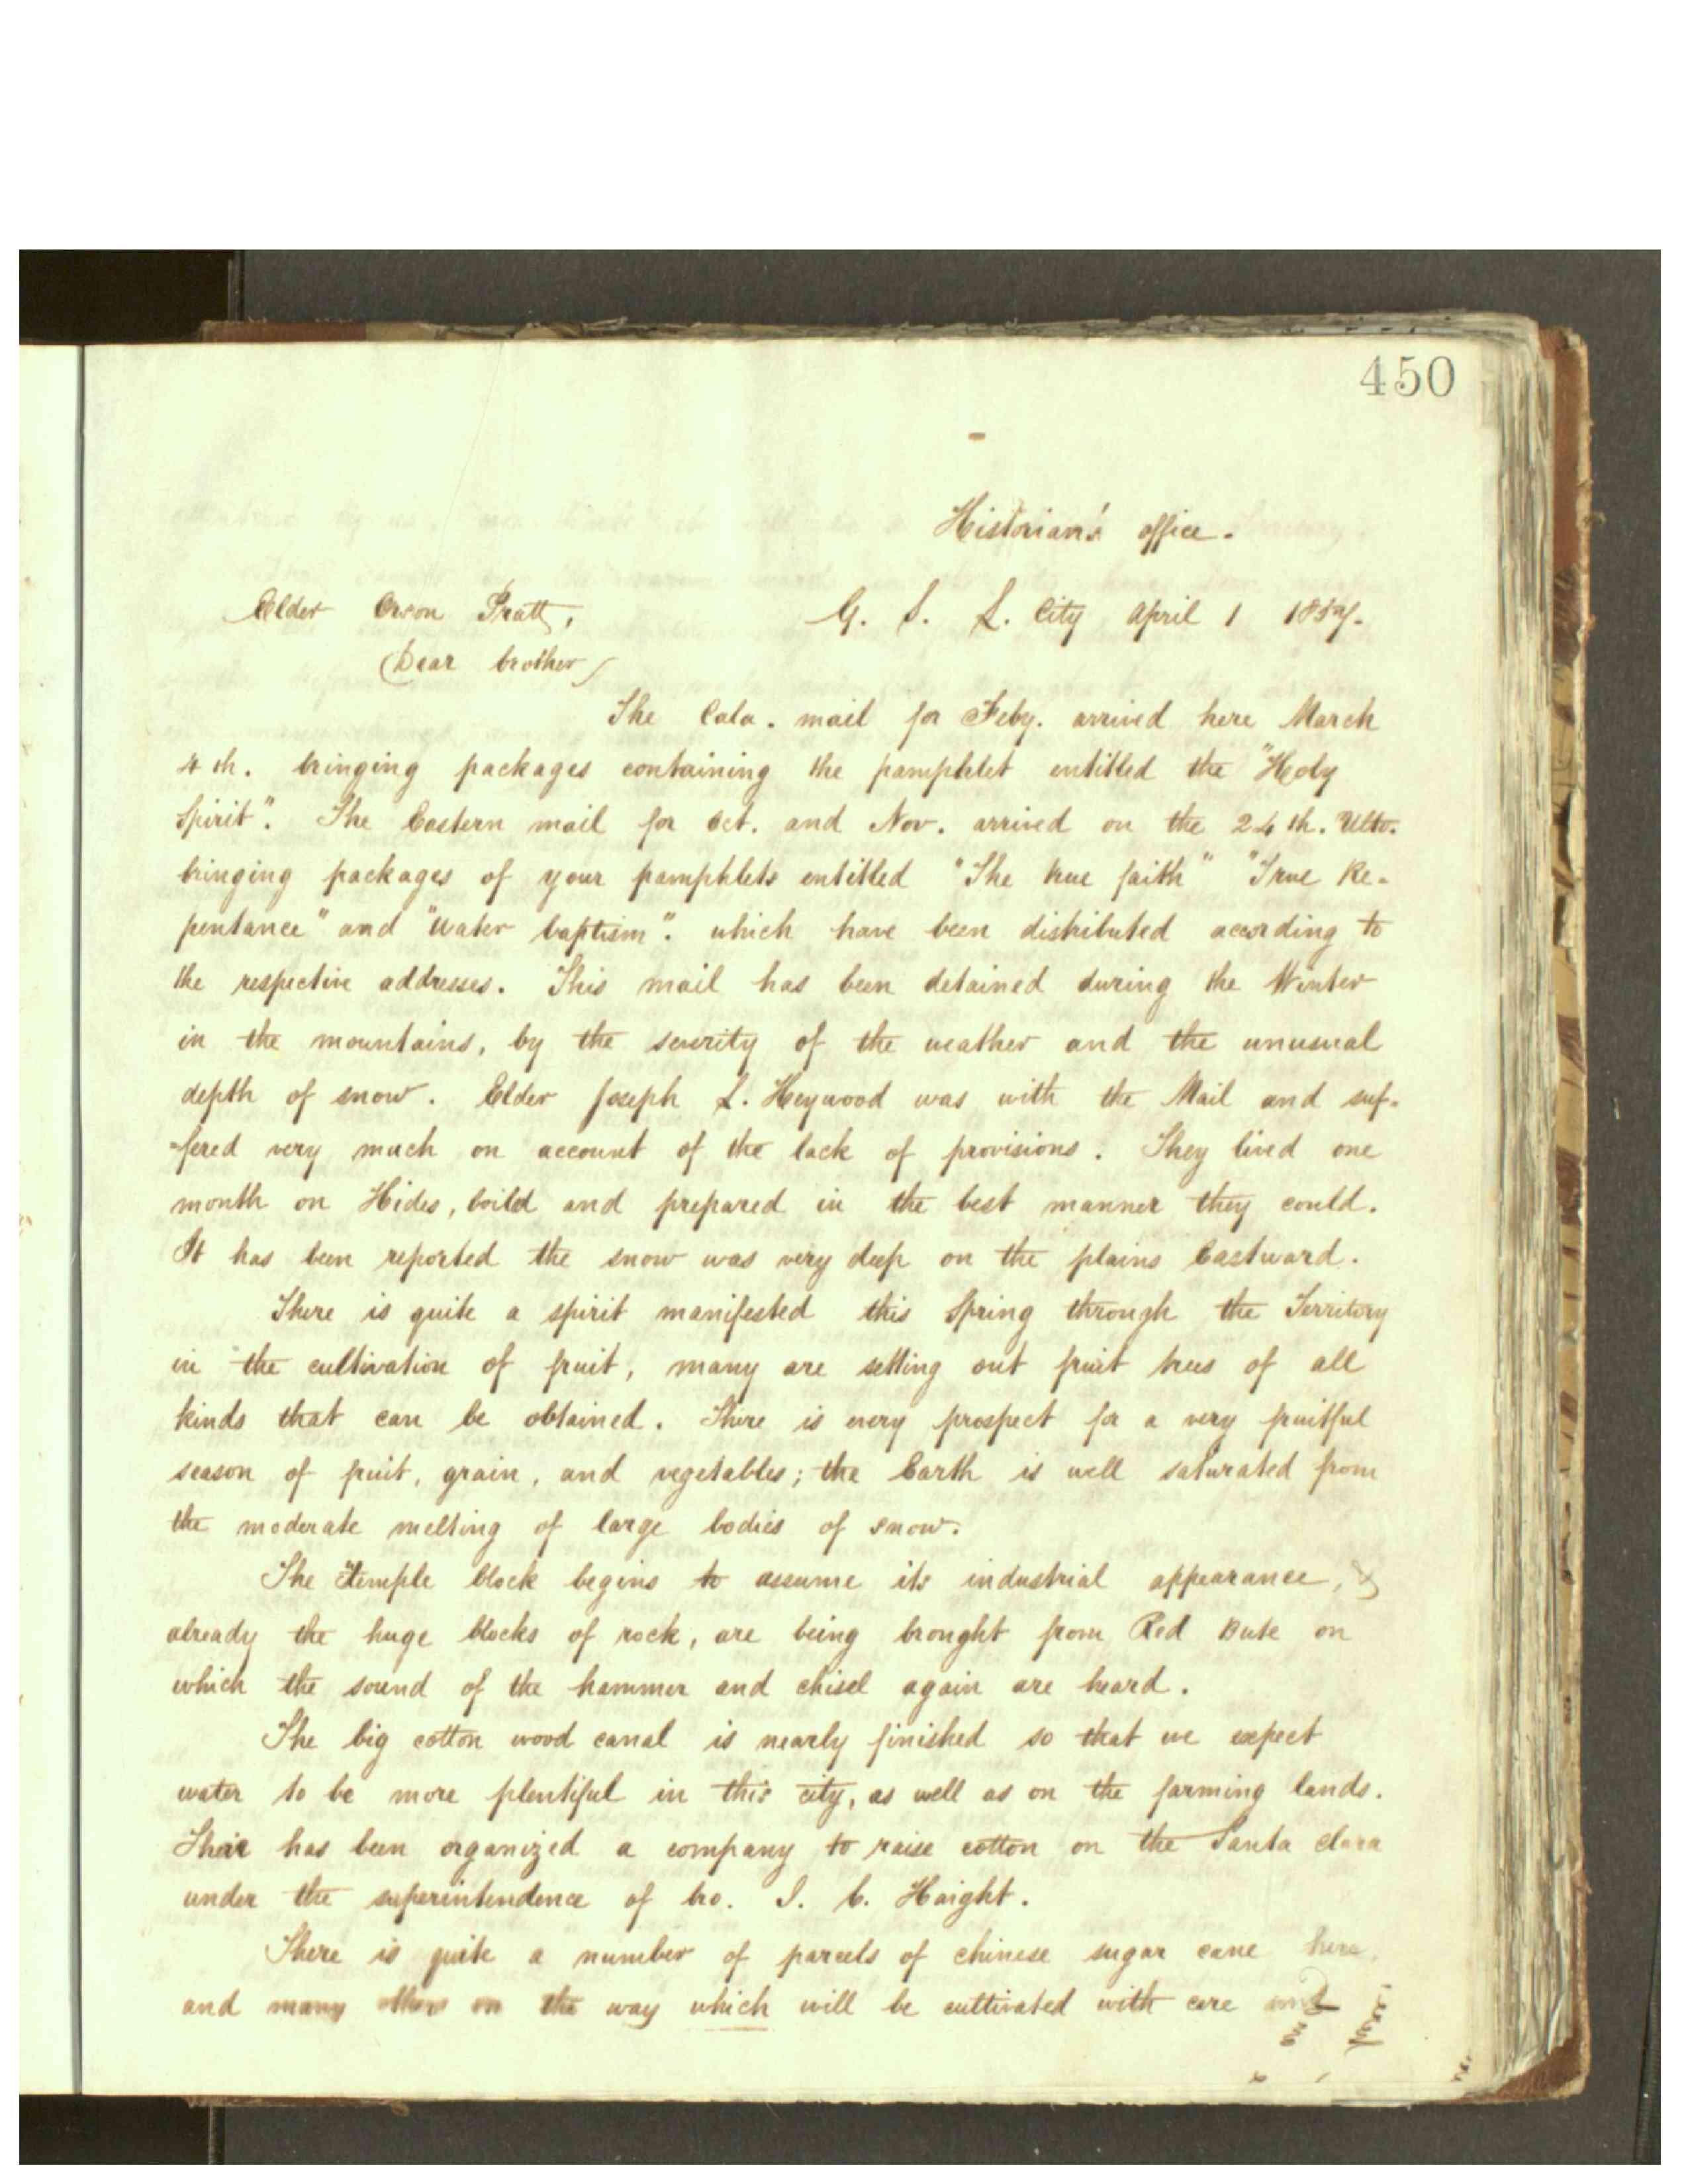 450
Historian's office.
Elder Orson Pratt, G. S. L. City April 1 1857.
Dear brother
The Cala. mail for Feby. arrived here March
4th. bringing packages containing the pamphlet entitled the "Holy
Spirit". The Eastern mail for Oct. and Nov. arrived on the 24th. Ulto.
bringing packages of your pamphlets entitled "The true faith" "True Re-
pentance" and "Water baptism". which have been distributed according to
the respective addresses. This mail has been detained during the Winter
in the mountains, by the severity of the weather and the unusual
depth of snow. Elder Joseph L. Heywood was with the Mail and suf-
-fered very much on account of the lack of provisions. They lived one
month on Hides, boild and prepared in the best manner they could.
It has been reported the snow was very deep on the plains Eastward.
There is quite a spirit manifested this Spring through the Territory
in the cultivation of fruit, many are setting out fruit trees of all
kinds that can be obtained. There is every prospect for a very fruitful
season of fruit, grain, and vegetables; the Earth is well saturated from
the moderate melting of large bodies of snow.
The Temple block begins to assume its industrial appearance, &
already the huge blocks of rock, are being brought from Red Bute on
which the sound of the hammer and chisel again are heard.
The big cotton wood canal is nearly finished so that we expect
water to be more plentiful in this city, as well as on the farming lands.
Their has been organized a company to raise cotton on the Santa Clara
under the superintendence of bro. I. C. Haight.
There is quite a number of parcels of chinese sugar cane here,
and many others on the way which will be cultivated with care and